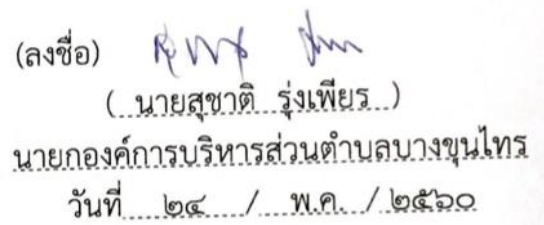 (ลงชื่อ)
( นายสุชาติ รุ่งเพียร )
นายกองค์การบริหารส่วนตำบลบางขุนไทร
วันที่ ๒๔ / พ.ค. / ๒๕๖๐